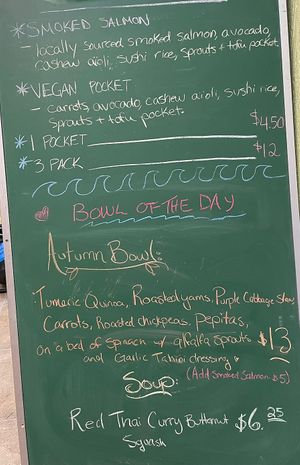 * SMOKED SALMON
- locally sourced smoked salmon, avocado,
cashew aioli, sushi rice, sprouts + tofu pocket.
* VEGAN POCKET
- carrots, avocado, cashew aioli, sushi rice,
sprouts + tofu pocket.
* 1 POCKET $4.50
* 3 PACK $12
BOWL OF THE DAY
Autumn Bowl:
Tumeric Quinoa, Roasted yams, Purple Cabbage Slaw
Carrots, Roasted chickpeas, Pepitas,
on a bed of spinach w/ alfalfa sprouts $13
and Garlic Tahini dressing
(Add Smoked Salmon $5)
Soup:
Red Thai Curry Butternut $6.25
Squash